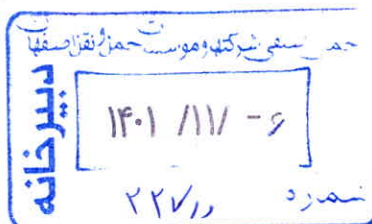 صنفی شرکتها و موسسات حمل و نقل اصفهان
دبیرخانه
۱۴۰۱ /۱۱/ -۶
شماره